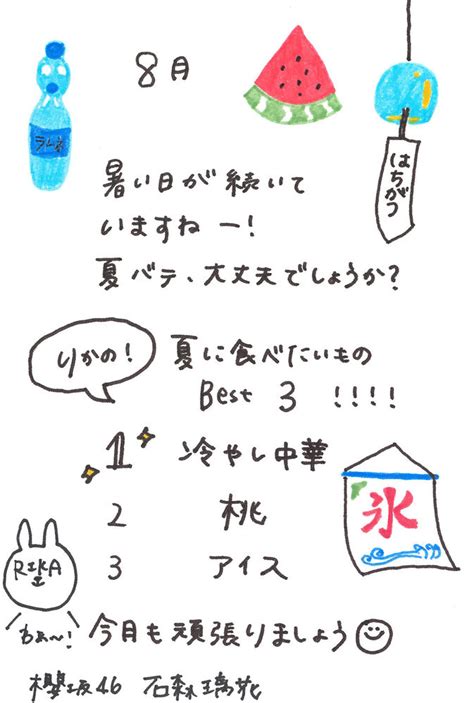 8月
ラムネ
はちがつ
暑い日が続いて
いますねー!
夏バテ、大丈夫でしょうか?
りかの!
夏に食べたいもの
Best 3 !!!!
1 冷やし中華
2 桃
3 アイス
氷
RIKA
今月も頑張りましょう
櫻坂46 石森璃花